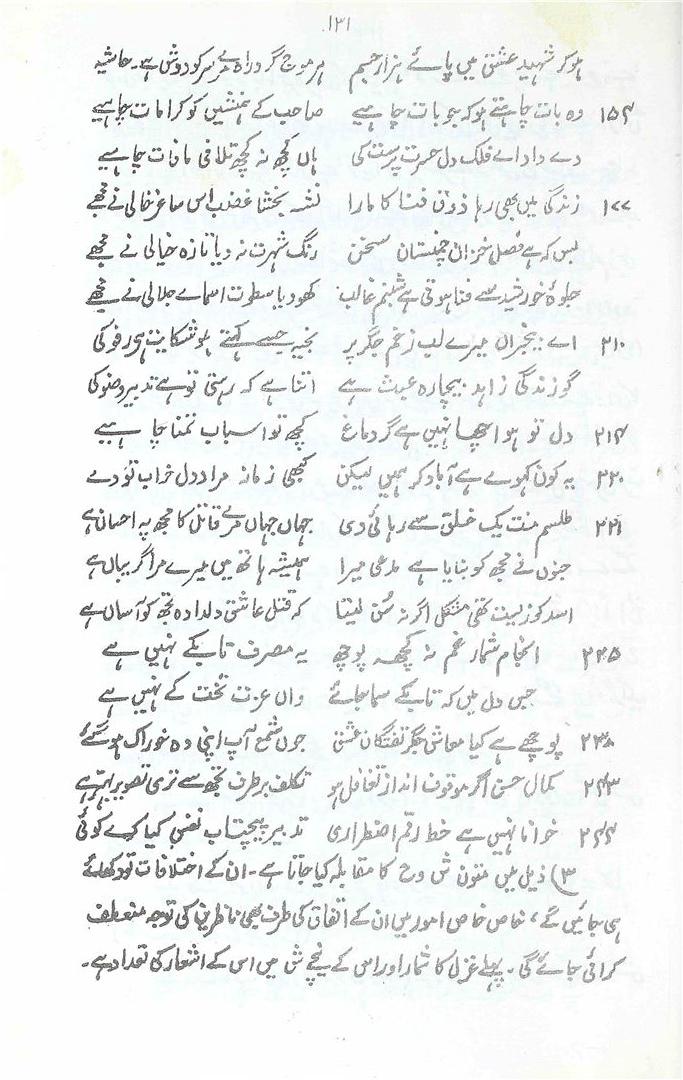 ۱۳۱
ہوکر شہید عشق میں پائے ہزار جسم ہر موج گرد راہ مرے سر کو دوش ہے۔ حاشیہ
۱۵۴ وہ بات چاہتے ہو کہ جو بات چاہیے صاحب کے ہمنشیں کو کرامات چاہیے
دے داد اے فلک دل حسرت پرست کی ہاں کچھ نہ کچھ تلافی مافات چاہیے
۱۷۷ زندگی میں بھی رہا ذوق فنا کا مارا نشہ بخشا غضب اس ساغر خالی نے مجھے
بس کہ ہے فصل خزان چمنستان سخن رنگ شہرت نہ دیا تازہ خیالی نے مجھے
جلوۂ خورشید سے فنا ہوتی ہے شبنم غالب کھو دیا سطوت اسمائے جلالی نے مجھے
۲۱۰ اے بیخبراں میرے لب زخم جگر پر بخیہ جسے کہتے ہو شکایت ہے رفو کی
گو زندگی زاہد بیچارہ عبث ہے اتنا ہے کہ رہتی تو ہے تدبیر وضو کی
۲۱۴ دل تو ہو اچھا نہیں ہے گر دماغ کچھ تو اسباب تمنا چاہیے
۲۲۰ یہ کون کہوے ہے آباد کر ہمیں لیکن کبھی زمانہ مراد دل خراب تو دے
۲۲۱ طلسم منت یک خلق سے رہائی دی جہاں جہاں مرے قاتل کا مجھ پہ احساں ہے
جنوں نے مجھ کو بنایا ہے مدعی میرا ہمیشہ ہاتھ میں میرے مرا گریباں ہے
اسد کو زیست تھی مشکل اگر نہ سن لیتا کہ قتل عاشق دلدادہ تجھ کو آساں ہے
۲۲۵ انجام شمار غم نہ کچھ پوچھ یہ مصرف تابکے نہیں ہے
جس دل میں کہ تابکے سما جائے واں عزت تخت کے نہیں ہے
۲۳۸ پوچھے ہے کیا معاش جگر تفتگان عشق جوں شمع آپ اپنی وہ خوراک ہوگئے
۲۴۳ کمال حسن اگر موقوف انداز تغافل ہو تکلف برطرف تجھ سے تری تصویر بہتر ہے
۲۴۴ خوانا نہیں ہے خط رقم اضطراری تدبیر پیچتاب نفس کیا کرے کوئی
۳) ذیل میں متون ش و ح کا مقابلہ کیا جاتا ہے۔ ان کے اختلافات تو دکھلائے
ہی جائیں گے، خاص خاص امور میں ان کے اتفاق کی طرف بھی ناظرین کی توجہ منعطف
کرائی جائے گی۔ پہلے غزل کا شمار اور اس کے نیچے ش میں اس کے اشعار کی تعداد ہے۔